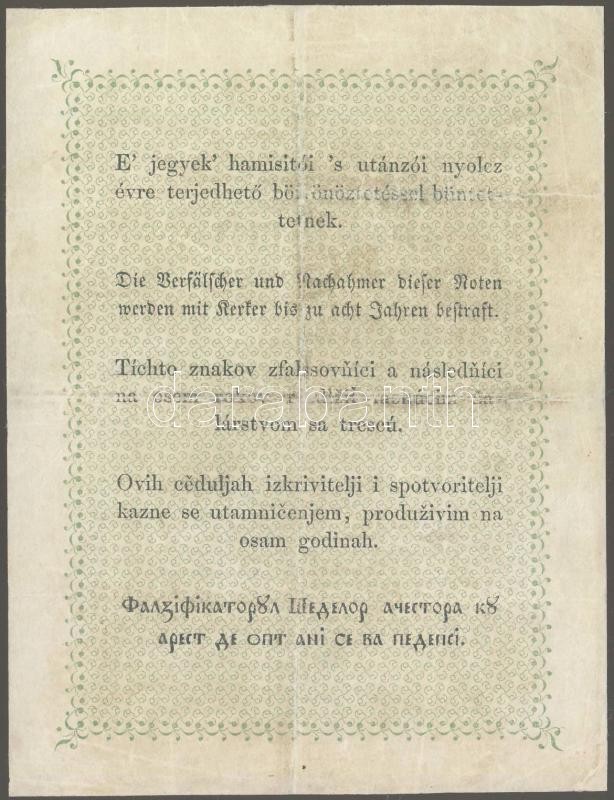 E' jegyek' hamisitói 's utánzói nyolcz
évre terjedhető börtönöztetéssel büntet-
tetnek.
Die Verfälscher und Nachahmer dieser Noten
werden mit Kerker bis zu acht Jahren bestraft.
Tíchto znakov zfalšsovňíci a následňíci
na osem rokov
lárstvom sa trescú.
Ovih cěduljah izkrivitelji i spotvoritelji
kazne se utamničenjem, produživim na
osam godinah.
Фалзіфікаторꙋл Шеделор ачестора кꙋ
арест де опт ані се ва педепсі.
darabanth